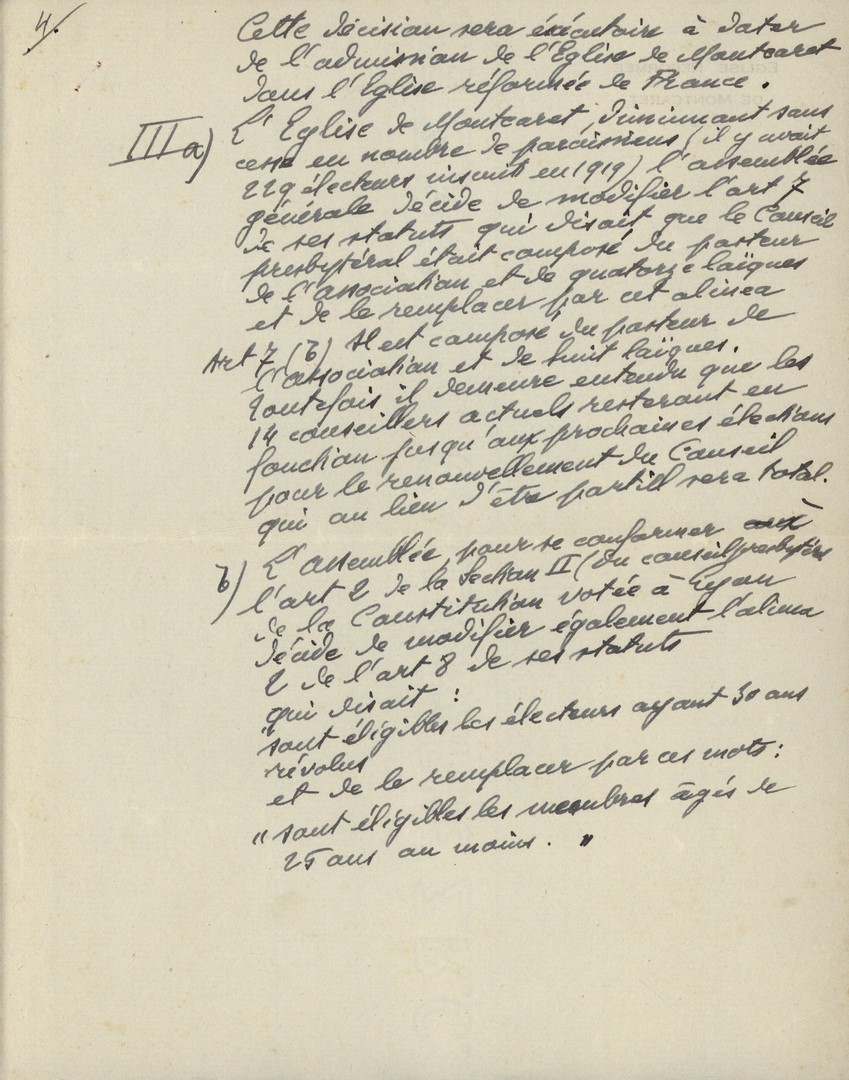 4/.
Cette décision sera exécutoire à dater
de l'admission de l'Eglise de Montcaret
dans l'Eglise réformée de France.
III a) L'Eglise de Montcaret, diminuant sans
cesse en nombre de paroissiens (il y avait
229 électeurs inscrits en 1919) l'assemblée
générale décide de modifier l'art 7
de ses statuts qui disait que le Conseil
presbytéral était composé du pasteur
de l'association et de quatorze laïques
et de le remplacer par cet alinea
Art 7 (b) Il est composé du pasteur de
l'association et de huit laïques.
Toutefois il demeure entendu que les
14 conseillers actuels resteront en
fonction jusqu'aux prochaines élections
pour le renouvellement du Conseil
qui au lieu d'être partiel sera total.
b) L'assemblée, pour se conformer à
l'art 2 de la Section II (du conseil presbytéral
de la Constitution votée à Lyon
décide de modifier également l'alinea
2 de l'art 8 de ses statuts
qui disait :
"sont éligibles les électeurs ayant 30 ans
révolus
et de le remplacer par ces mots :
" sont éligibles les membres âgés de
25 ans au moins. "